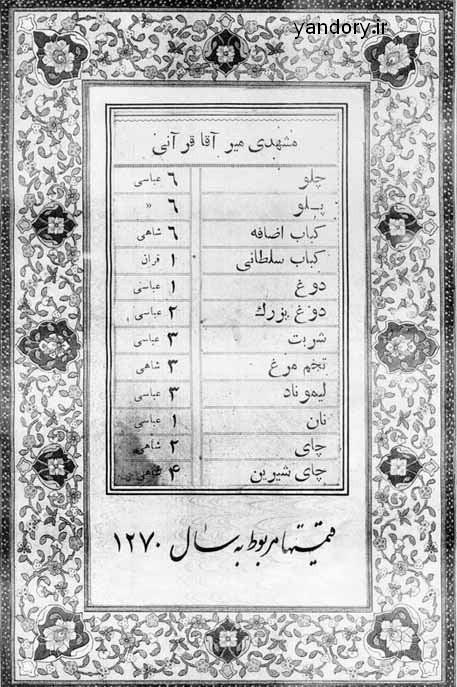 yandory.ir
مشهدی میر آقا قرآنی
چلو ۶ عباسی
پلو ۶ »
کباب اضافه ۶ شاهی
کباب سلطانی ۱ قران
دوغ ۱ عباسی
دوغ بزرگ ۲ عباسی
شربت ۳ عباسی
تخم مرغ ۳ شاهی
لیموناد ۳ عباسی
نان ۱ عباسی
چای ۲ شاهی
چای شیرین ۴ شاهی
قیمتها مربوط به سال ۱۲۷۰